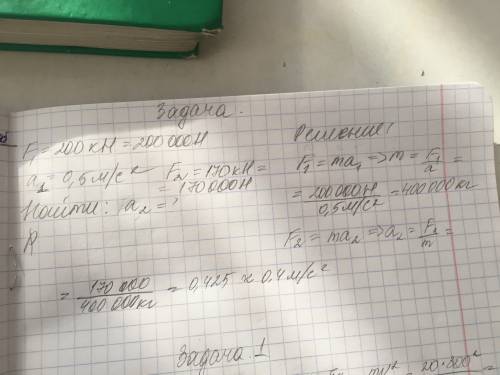 Задача.
F₁ = 200 кН = 200 000Н
a₁ = 0,5 м/с² F₂ = 170 кН =
= 170 000Н
Найти: a₂ = ?
Решение:
F₁ = ma₁ => m = F₁/a =
= 200 000Н/0,5 м/с² = 400 000 кг
F₂ = ma₂ => a₂ = F₂/m =
= 170 000/400 000 кг = 0,425 ≈ 0,4 м/с²
Задача 1
20·800²